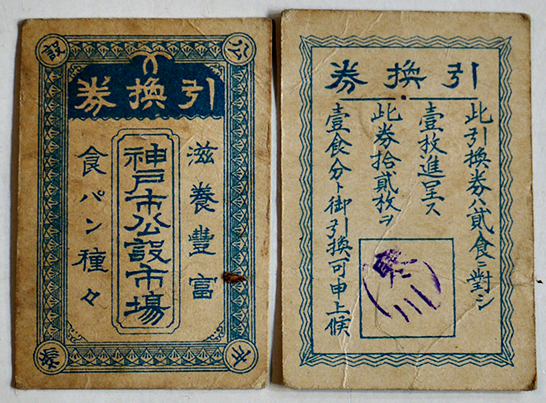 公設
引換券
滋養豐富
神戸市公設市場
食パン種々
引換券
此引換券ハ貳食ニ對シ
壹枚進呈ス
此券拾貳枚ヲ
壹食分ト御引換可申上候